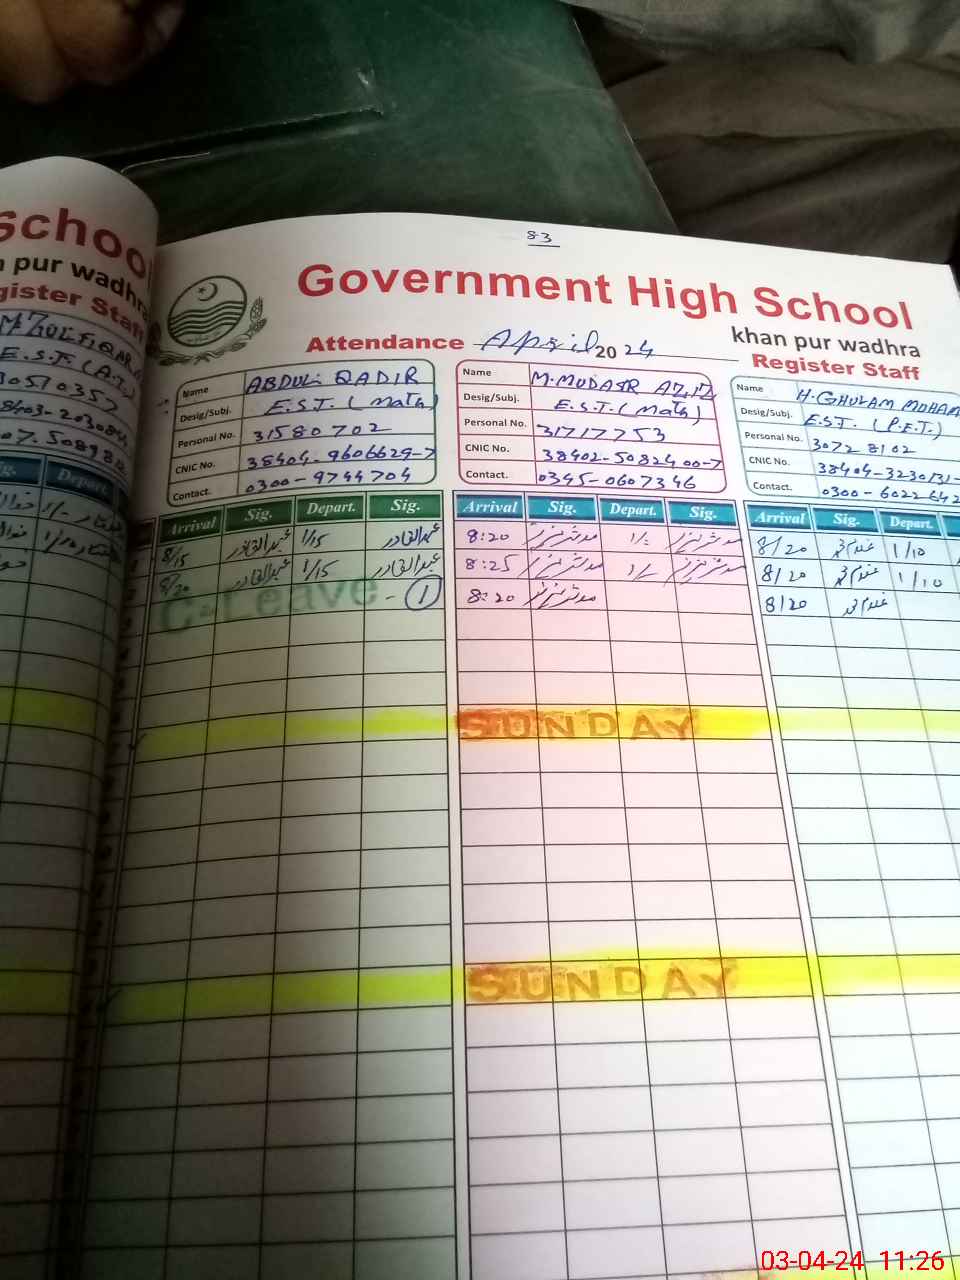 83
Government High School
khan pur wadhra
Attendance April 2024
Register Staff
school
n pur wadhra
gister Staff
Name ABDUL QADIR
Desig/Subj. E.S.T. (Math)
Personal No. 31580702
CNIC No. 38404-9606629-7
Contact. 0300-9744704
Arrival Sig. Depart. Sig.
8/15 عبدالقادر 1/15 عبدالقادر
8/20 عبدالقادر 1/15 عبدالقادر
C-Leave - 1
Name M. MUDASR AZIZ
Desig/Subj. E.S.T. (Math)
Personal No. 31717753
CNIC No. 38402-5082400-7
Contact. 0345-0607346
Arrival Sig. Depart. Sig.
8:20
8:25
8:20
SUNDAY
SUNDAY
Name H. GHULAM MOHAM
Desig/Subj. E.S.T. (P.E.T.)
Personal No. 30728102
CNIC No. 38404-3230731-
Contact. 0300-6022642
Arrival Sig. Depart.
8/20 غلام محمد 1/10
8/20 غلام محمد 1/10
8/20 غلام محمد
03-04-24 11:26